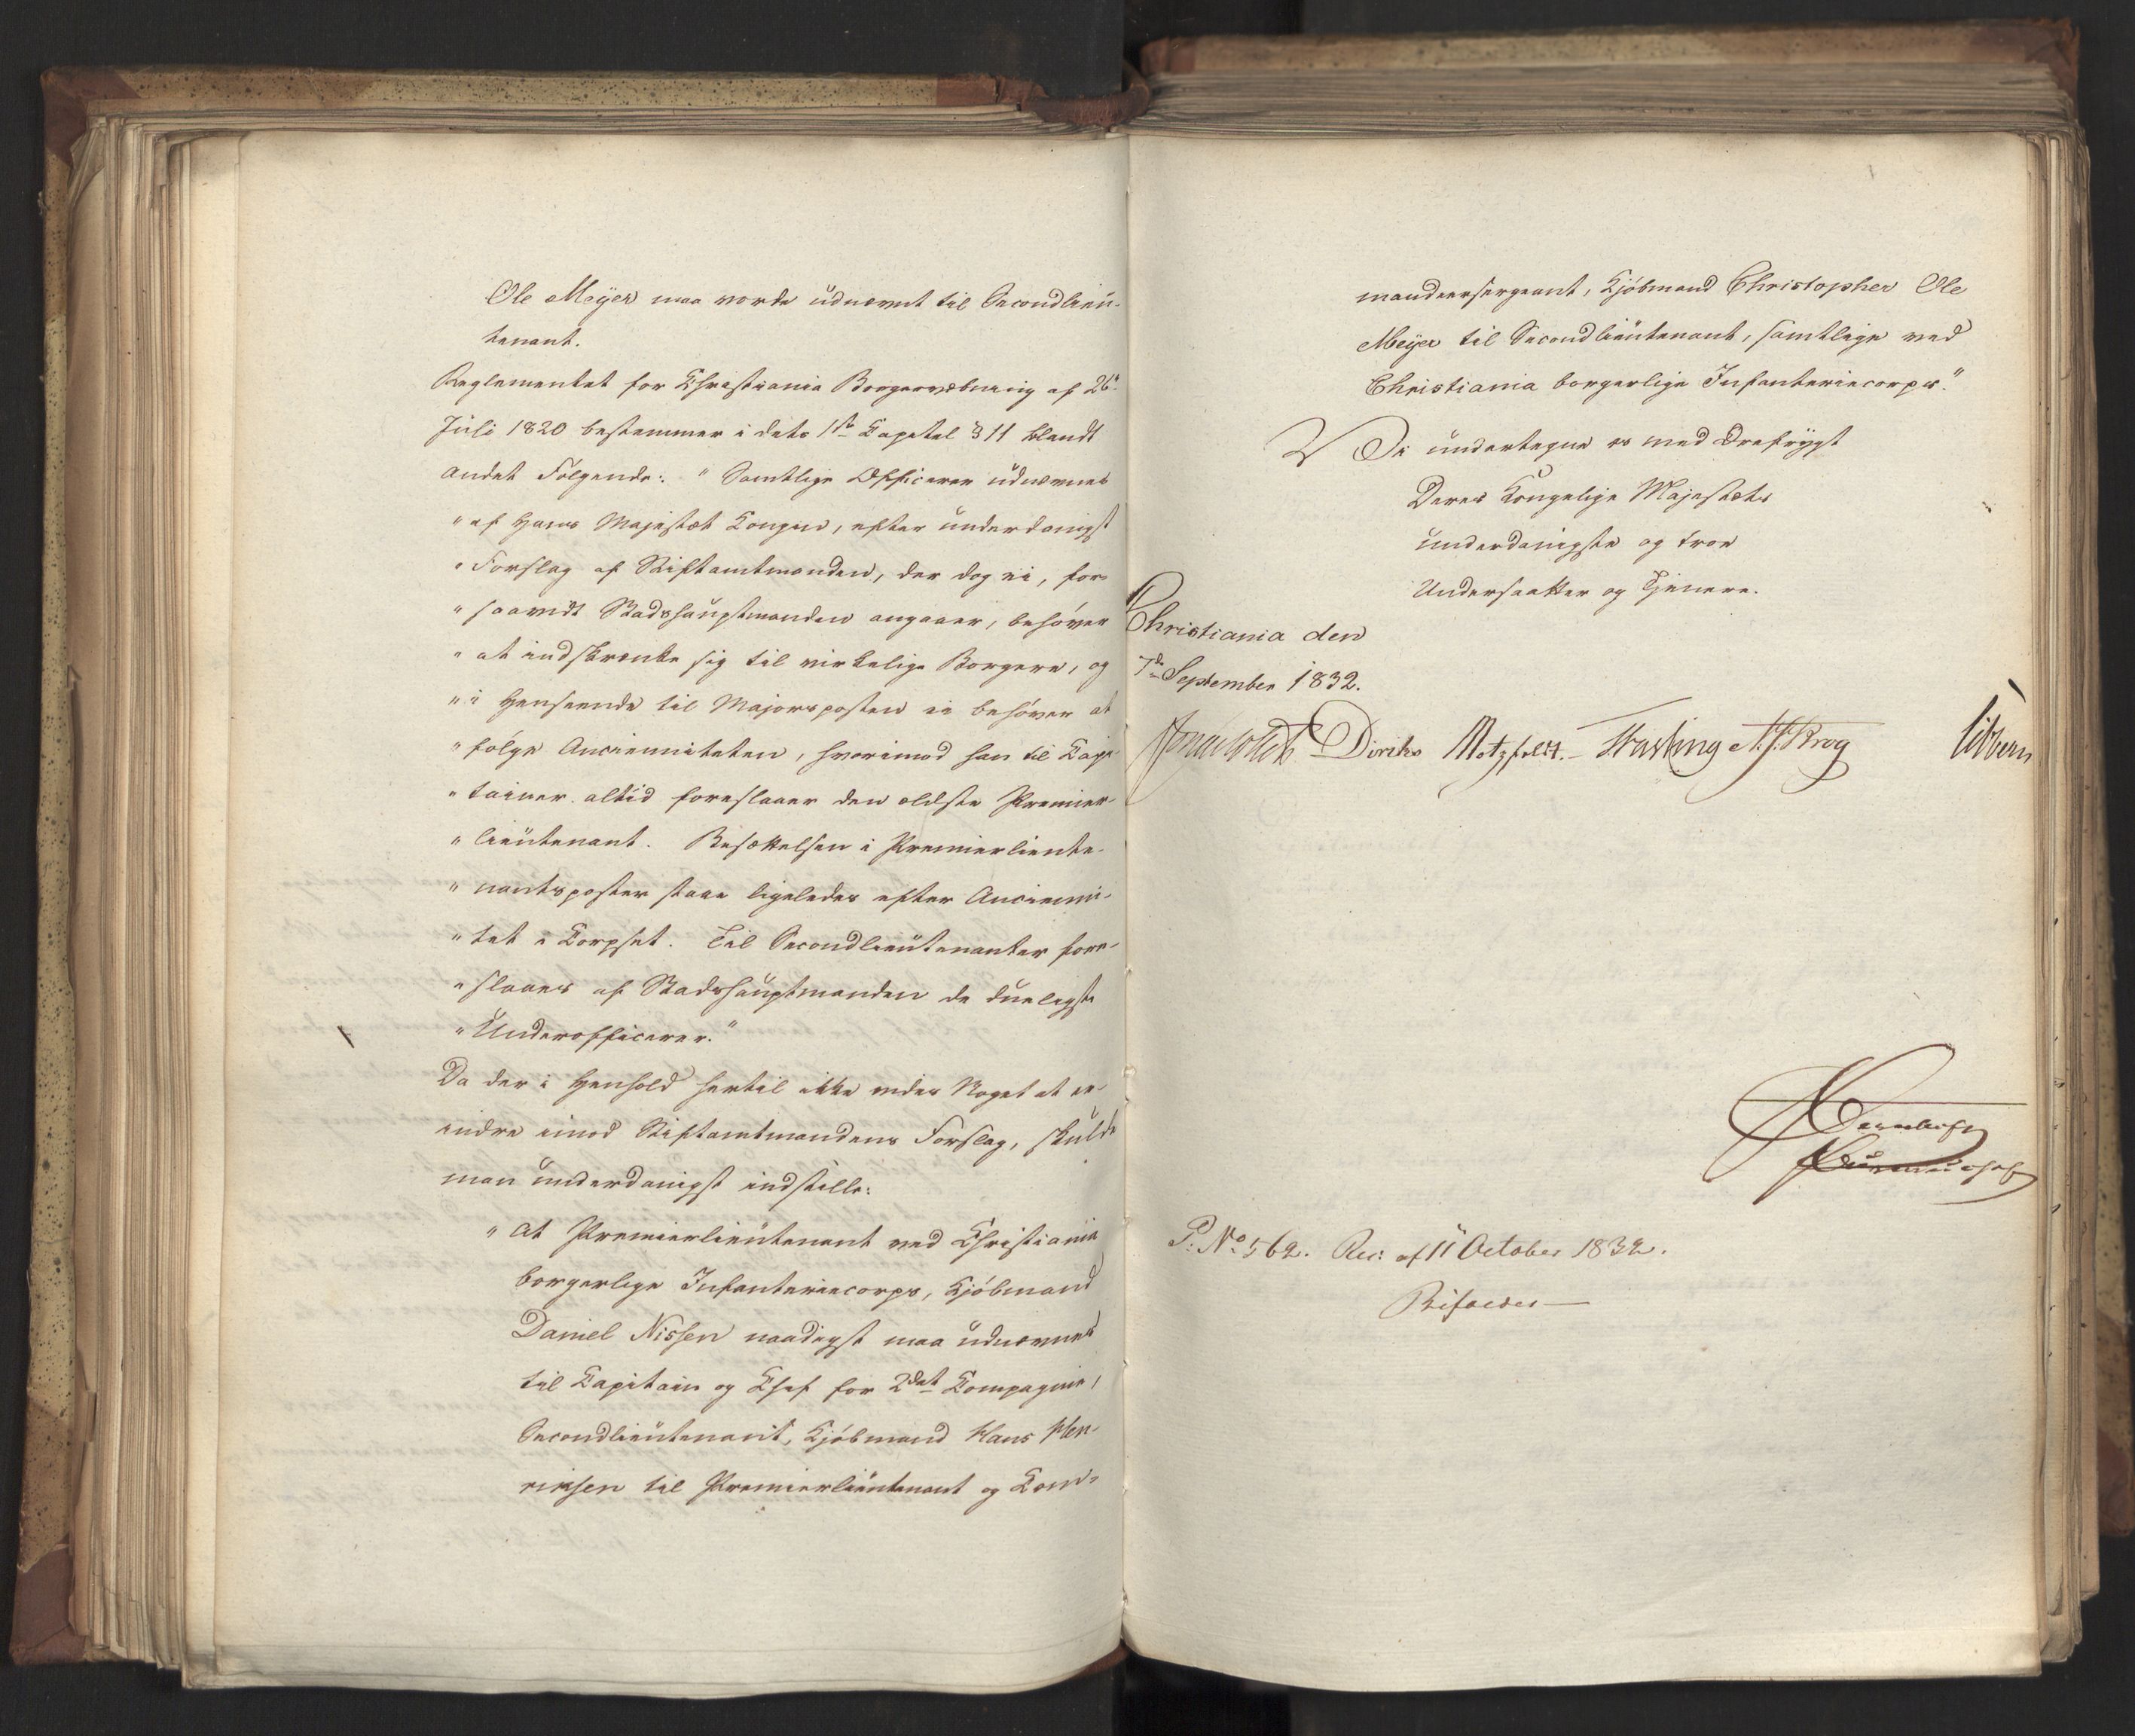 Ole Meÿer maa vorde udnævnt til Secondlieu-
tenant.
Reglementet for Christiania Borgervæbning af 26.
Juli 1820 bestemmer i dets 1ste Capitel § 11 blandt
andet Følgende: "Samtlige Officerer udnævnes
" af Hans Majestæt Kongen, efter underdanigst
" Forslag af Stiftamtmanden, der dog ei, for-
" saavidt Stadshauptmanden angaaer, behøver
" at indskrænke sig til virkelige Borgere, og
" i Henseende til Majorsposten ei behøver at
" følge Ancienniteten, hvorimod han til Capi-
" tainer altid foreslaaer den ældste Premier-
" lieutenant. Besættelsen i Premierlieute-
" nantsposter skeer ligeledes efter Ancienni-
" tet i Corpset. Til Secondlieutenanter fore-
" slaaes af Stadshauptmanden de dueligste
" Underofficerer."
Da der i Henhold hertil ikke vides Noget at er-
indre imod Stiftamtmandens Forslag, skulde
man underdanigst indstille:
" At Premierlieutenant ved Christiania
borgerlige Infanteriecorps, Kjøbmand
Daniel Nissen naadigst maa udnævnes
til Capitain og Chef for 2det Compagnie,
Secondlieutenant, Kjøbmand Hans Hen-
riksen til Premierlieutenant og Com-
mandeersergeant, Kjøbmand Christopher Ole
Meÿer til Secondlieutenant, samtlige ved
Christiania borgerlige Infanteriecorps."
Vi undertegne os med Ærefrygt
Deres Kongelige Majestæts
underdanigste og troe
Undersaatter og Tjenere.
Christiania den
7de September 1832.
Diriks Motzfeldt. Fasting N. J. Krog Vibern
P: No 562. Res: af 11 October 1832.
Bifaldes